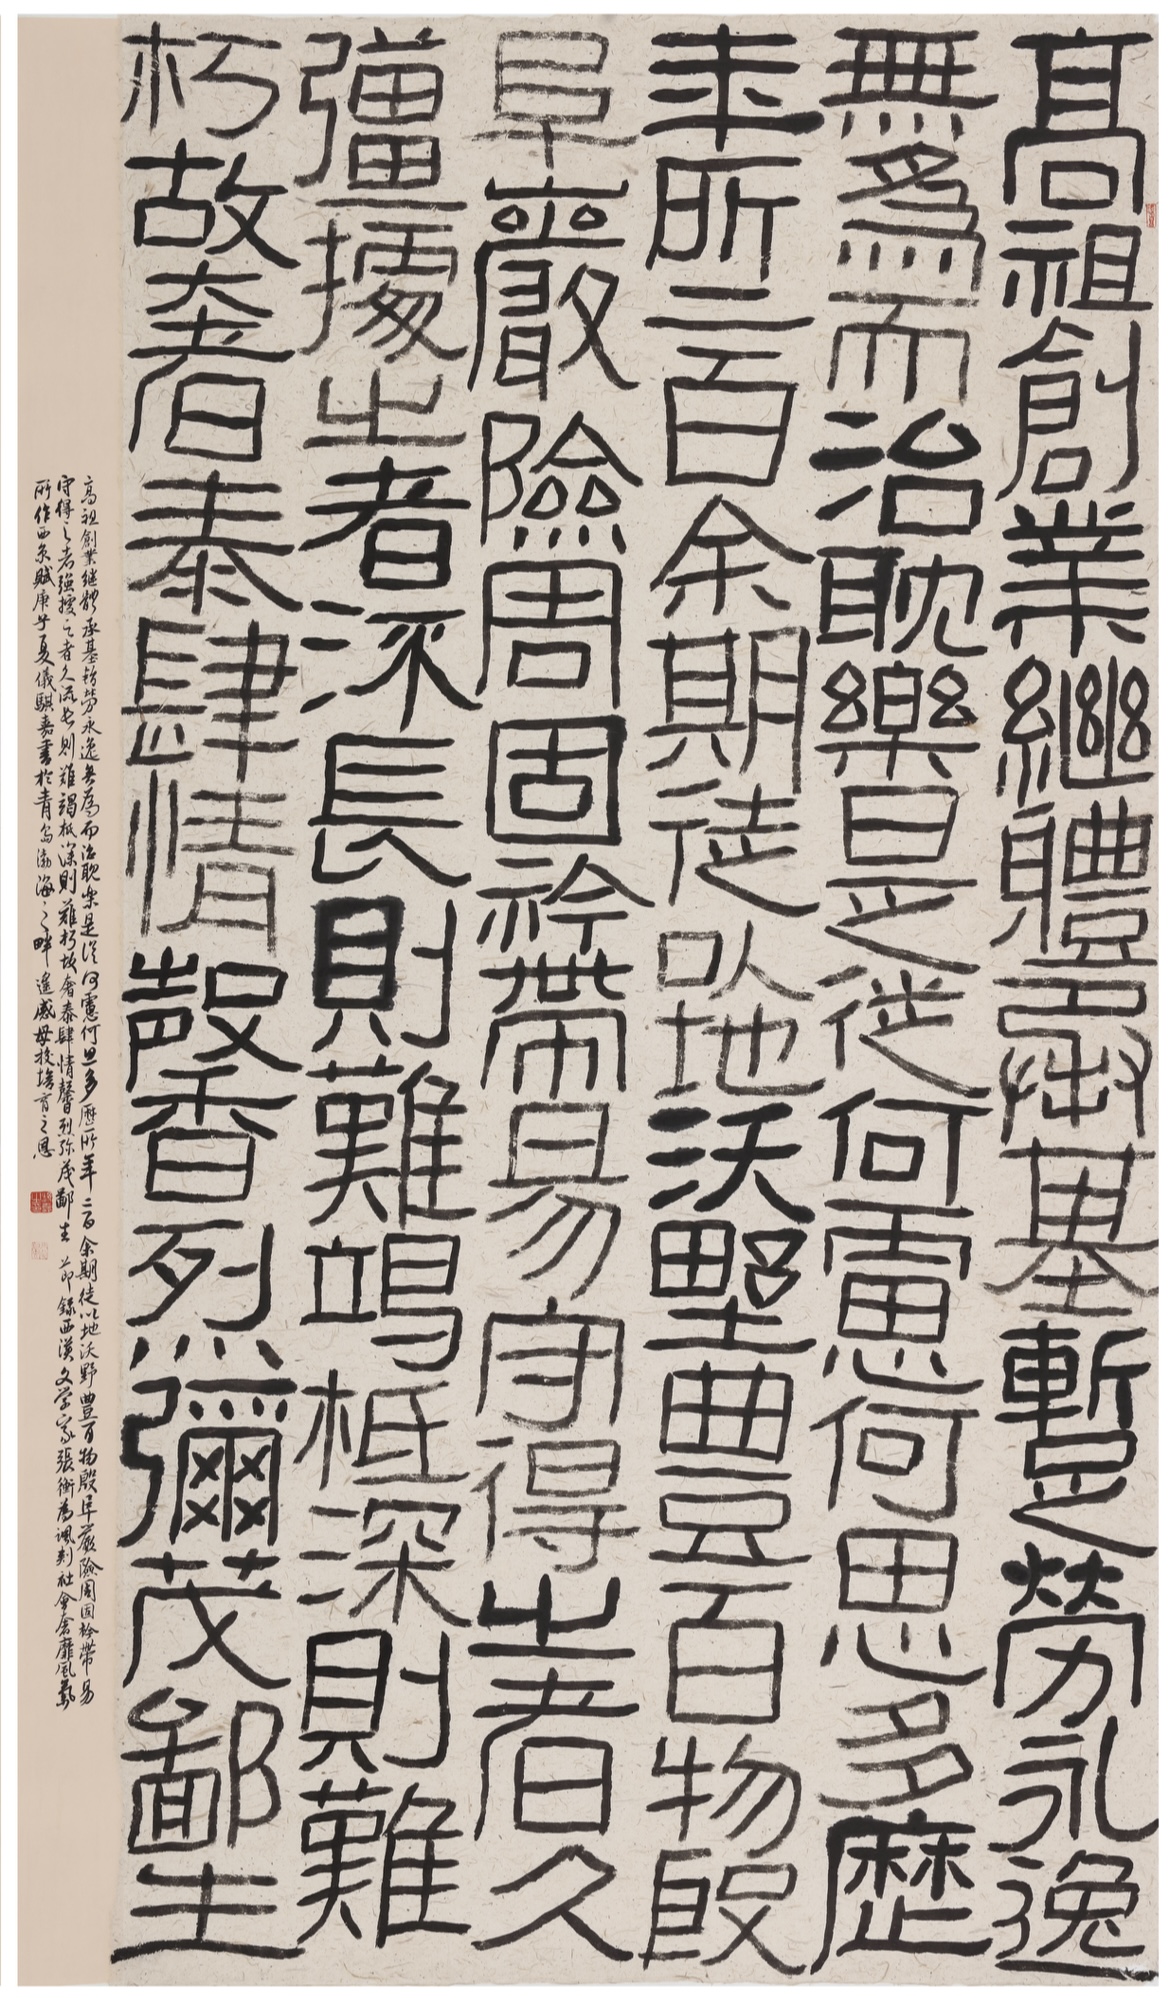 高祖創業繼體承基暫勞永逸
無為而治耽樂是從何慮何思多歷
年所二百余期徒以地沃野豐百物殷
阜巖險周固衿帶易守得之者久
彊據之者流長則難竭柢深則難
朽故奢泰肆情馨烈彌茂鄙生
高祖創業继體承基暫勞永逸無為而治耽樂是從何慮何思多歷所年二百余期徒以地沃野豐百物殷阜巖險周固衿帶易
守得之者強據之者久流长則難竭柢深則難朽故奢泰肆情馨烈弥茂鄙生 節録西漢文学家張衡為諷刺社會奢靡風氣
所作西京賦庚子夏儀騏嘉書於青島渤海之畔遥感母校培育之恩